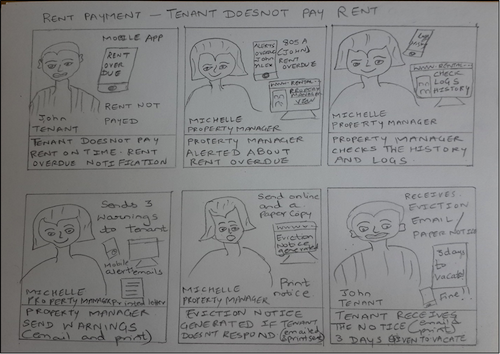 RENT PAYMENT - TENANT DOESNOT PAY RENT
MOBILE APP
RENT
OVER
DUE
RENT NOT
PAYED
John
TENANT
TENANT DOESNOT PAY
RENT ON TIME. RENT
OVERDUE NOTIFICATION
ALERTS
OVERDUE
JOHN
805 A
(JOHN)
RENT
OVERDUE
WWW.RENTAL
MICHELLE
PROPERTY MANAGER
PROPERTY MANAGER
ALERTED ABOUT
RENT OVERDUE
LOG
CHECK
LOGS
HISTORY
MICHELLE
PROPERTY MANAGER
PROPERTY MANAGER
CHECKS THE HISTORY
AND LOGS.
Sends 3
Warnings
to Tenant
Mobile
alert
emails
Printed letter
MICHELLE
PROPERTY MANAGER
PROPERTY MANAGER
SEND WARNINGS
(email and print)
Send online
and a
Paper Copy
www.
Eviction
Notice
generated
Print
notice
MICHELLE
PROPERTY MANAGER
EVICTION NOTICE
GENERATED IF TENANT
DOESN'T RESPOND (emailed
RECEIVES
EVICTION
EMAIL/
PAPER NOTICE
3 days
to
vacate
Fine!!
John
TENANT
TENANT RECEIVES
THE NOTICE (email &
print)
3 DAYS GIVEN TO VACATE